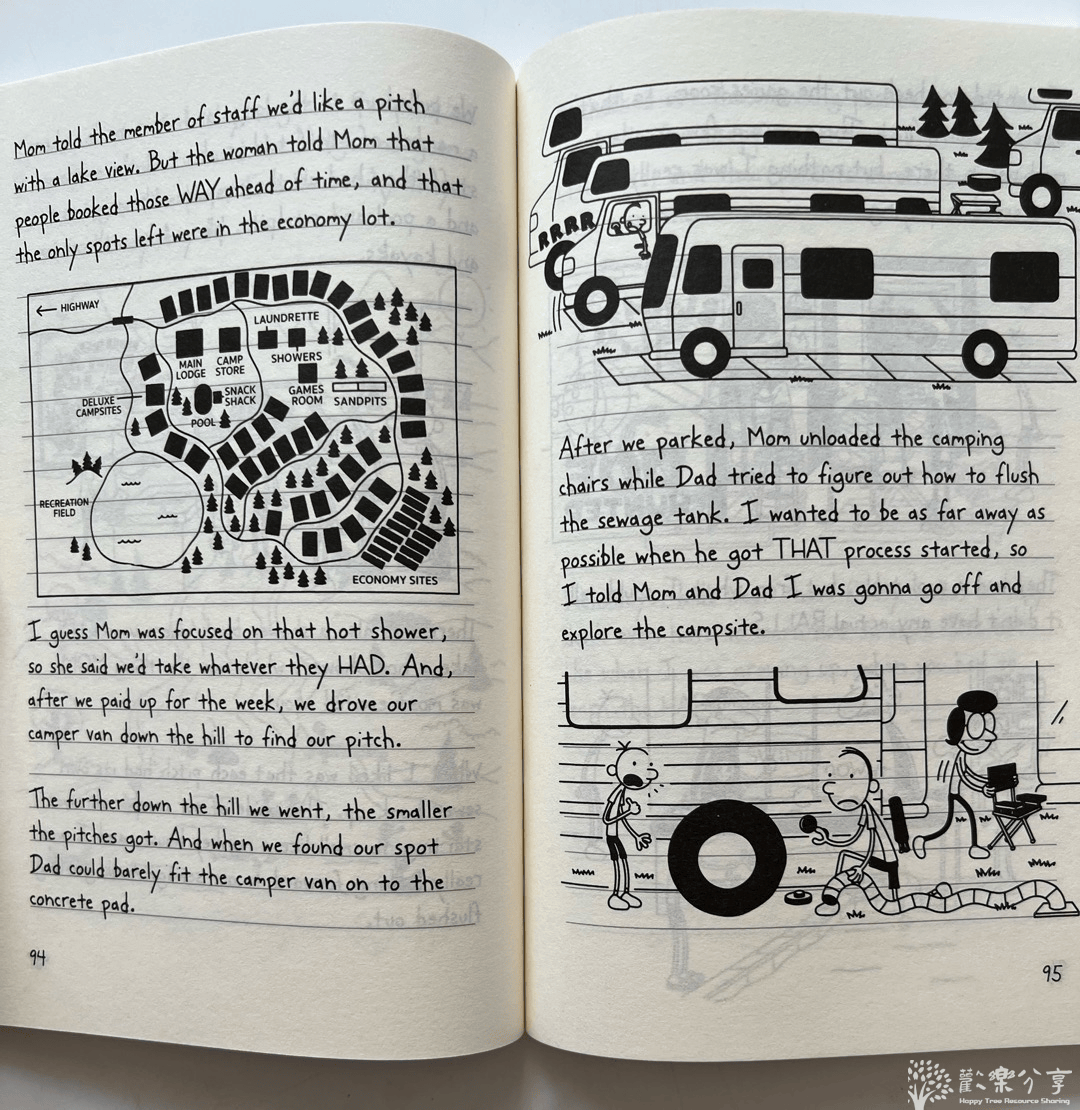 Mom told the member of staff we'd like a pitch
with a lake view. But the woman told Mom that
people booked those WAY ahead of time, and that
the only spots left were in the economy lot.
← HIGHWAY
LAUNDRETTE
MAIN LODGE
CAMP STORE
SHOWERS
DELUXE CAMPSITES
SNACK SHACK
GAMES ROOM
SANDPITS
POOL
RECREATION FIELD
ECONOMY SITES
I guess Mom was focused on that hot shower,
so she said we'd take whatever they HAD. And,
after we paid up for the week, we drove our
camper van down the hill to find our pitch.
The further down the hill we went, the smaller
the pitches got. And when we found our spot
Dad could barely fit the camper van on to the
concrete pad.
94
RRRR
After we parked, Mom unloaded the camping
chairs while Dad tried to figure out how to flush
the sewage tank. I wanted to be as far away as
possible when he got THAT process started, so
I told Mom and Dad I was gonna go off and
explore the campsite.
95
歡樂分享
Happy Tree Resource Sharing